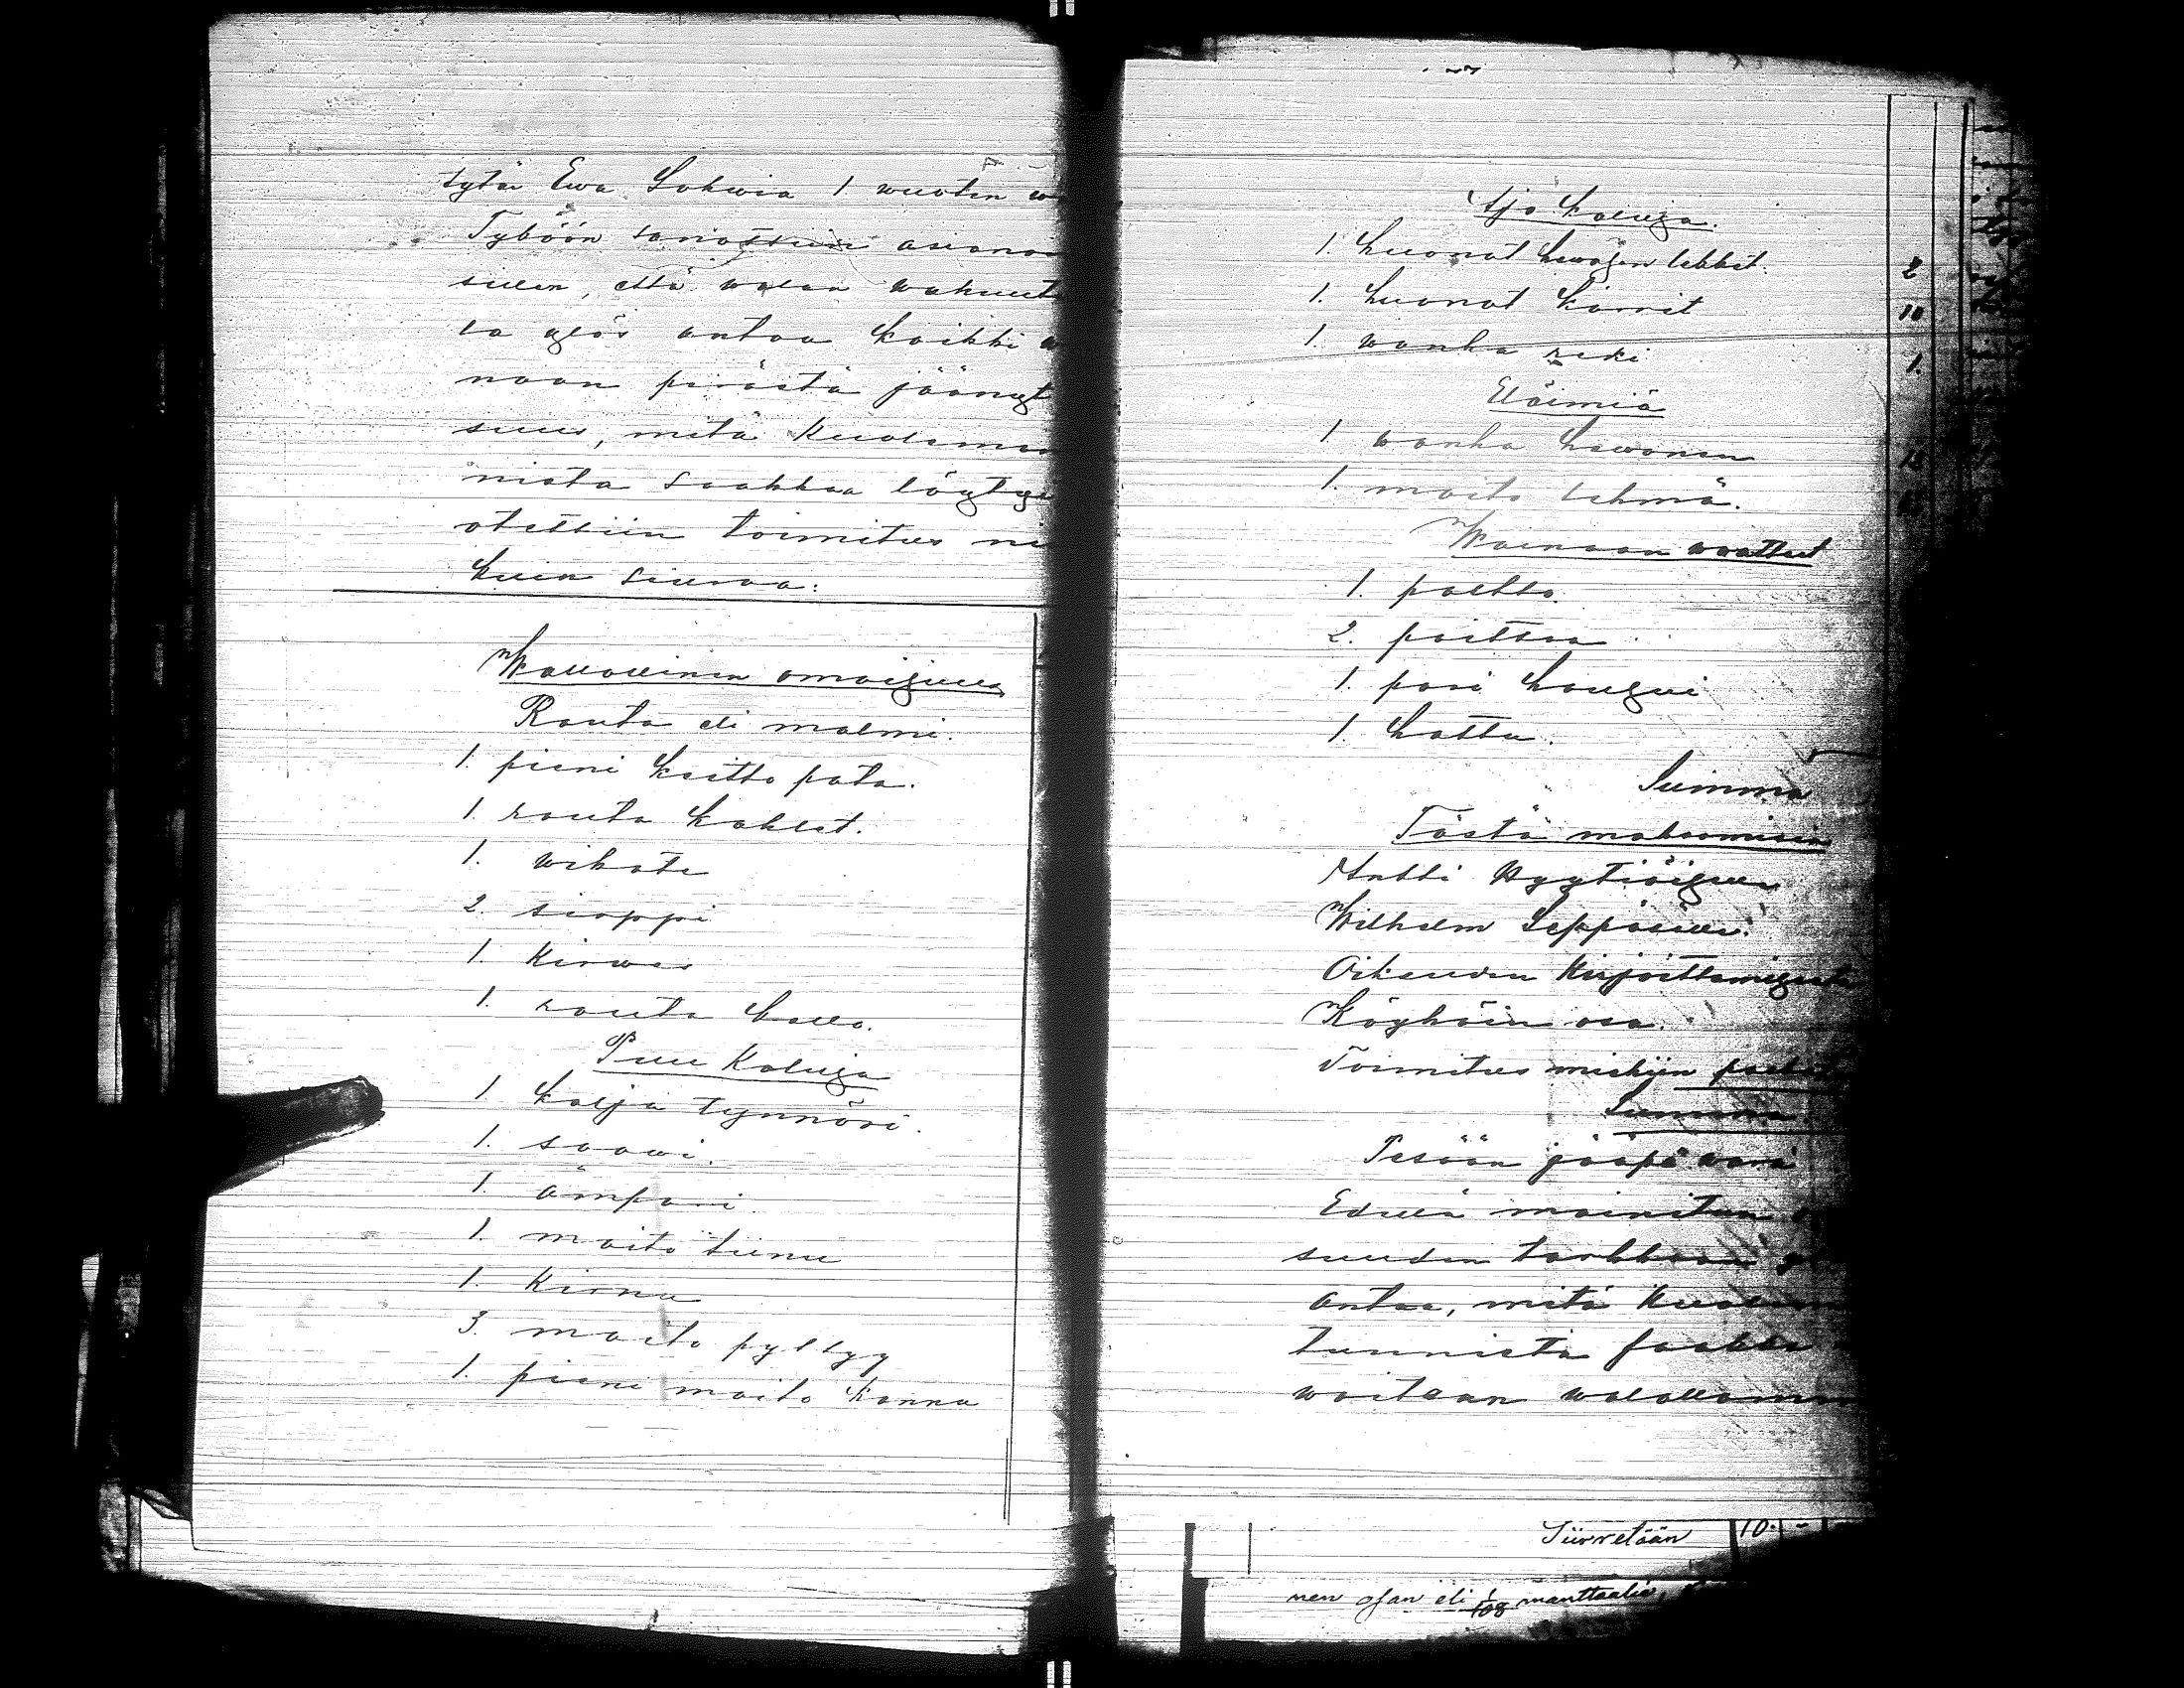 tytär Ewa Sohwia 1 wuoten w
Työhön sanottiin asiano
sillen, että walan wakuut
la ylös antaa kaikki
naan perästä jäänyt
suus, mitä kuoleman
nista saakkaa löytyy
otettiin toimitus
kuin seuraa:
Wallollinen omaisuus
Rauta eli malmi.
1. pieni keitto pata.
1. rauta kahlet.
1. wikate
2. sirppi
1. Kirwes
1. rauta talla.
Puu Kaluja
1 kalja tynnöri.
1. saawi.
1. ämpäri.
1. maito tiinu
1. Kirnu
3. maito pyttyy
1. pieni maito kannu
Ajo kaluja.
1. huonot hewosen lekket. 2
1. huonot kärrit 10
1. wanha reki 1.
Eläimiä
1 wanha hewonen
1. maito lehmä.
Wainaan waatteet
1. paltto.
2. paittaa
1. pari housui
1. hattu.
Summa
Tästä maksamisia
Antti Hyytiäisellen
Wilhelm Seppäsellen
Oikeuden kirjoittamisesta
Köyhäin osa.
Toimitus miehijen palkat
Summa
Pesään jääpä wara
Edellä mainitun
suuden tarkkaan
antaa, mitä kuoleman
tunnista saakka
woitaan walallamme
Siirretään 10. -
nen osan eli 1/108 manttaalia,